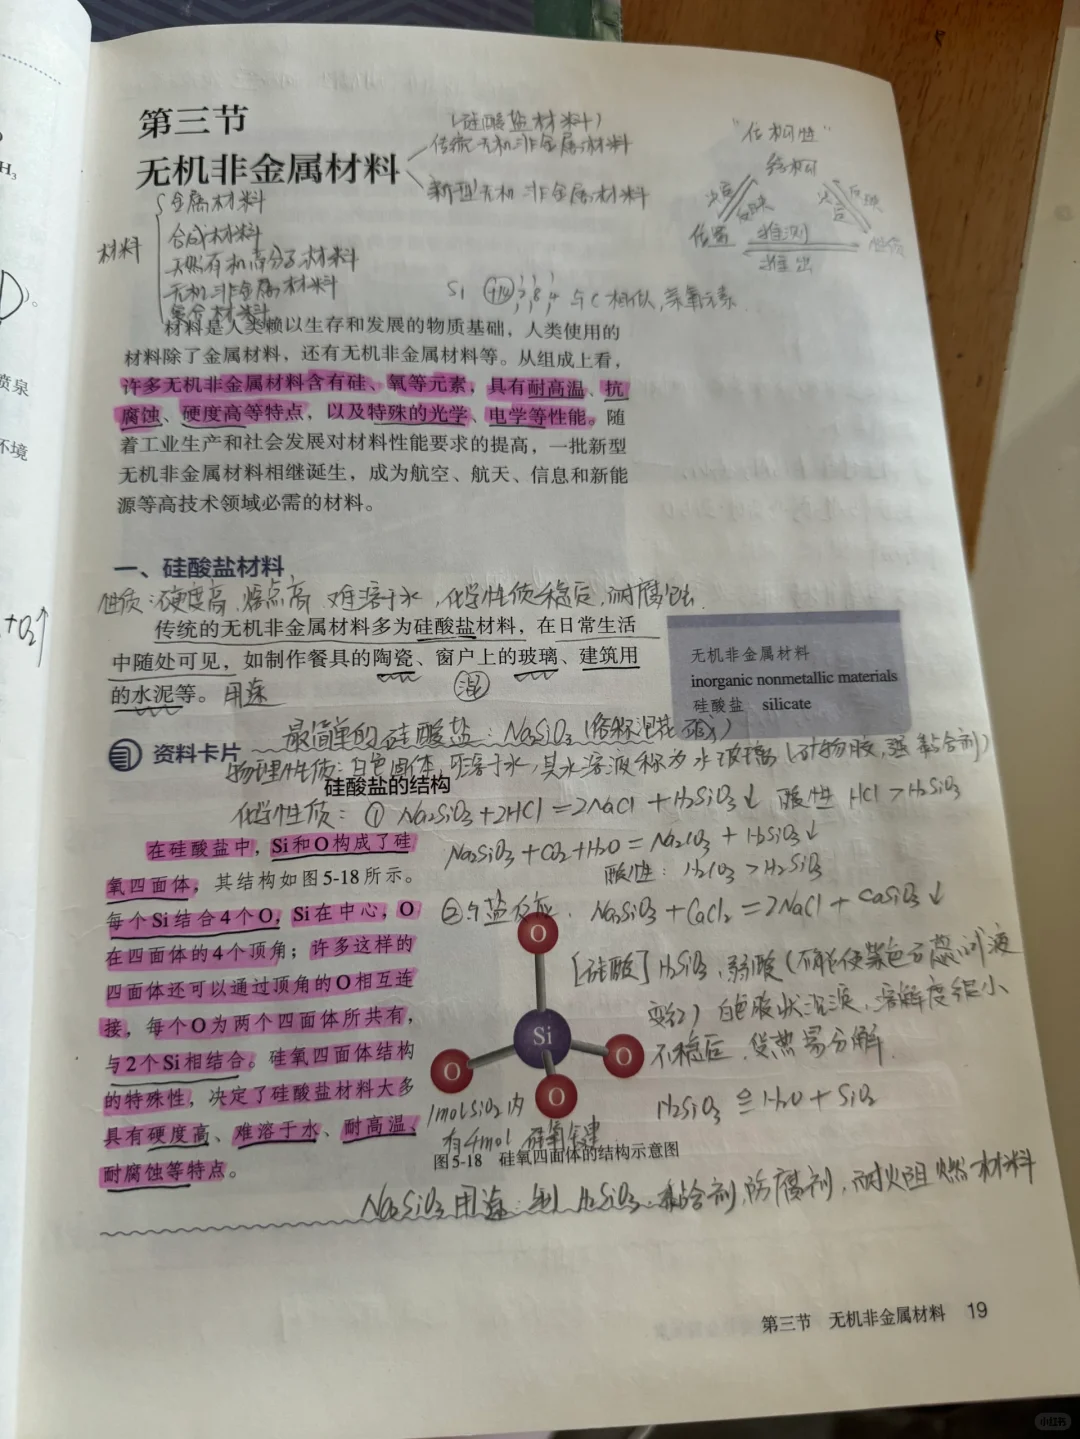 第三节
无机非金属材料
(硅酸盐材料)
传统无机非金属材料
新型无机非金属材料
"位构性"
结构
位置 推测
推出
性质
材料
金属材料
合成材料
天然有机高分子材料
无机非金属材料
复合材料
Si +14 2 8 4 与C相似,亲氧元素.
材料是人类赖以生存和发展的物质基础,人类使用的
材料除了金属材料,还有无机非金属材料等。从组成上看,
许多无机非金属材料含有硅、氧等元素,具有耐高温、抗
腐蚀、硬度高等特点,以及特殊的光学、电学等性能。随
着工业生产和社会发展对材料性能要求的提高,一批新型
无机非金属材料相继诞生,成为航空、航天、信息和新能
源等高技术领域必需的材料。
一、硅酸盐材料
性质:硬度高、熔点高、难溶于水,化学性质稳定,耐腐蚀.
传统的无机非金属材料多为硅酸盐材料,在日常生活
中随处可见,如制作餐具的陶瓷、窗户上的玻璃、建筑用
的水泥等。用途
混
无机非金属材料
inorganic nonmetallic materials
硅酸盐 silicate
最简单的硅酸盐:Na₂SiO₃(俗称泡花碱)
资料卡片
物理性质:白色固体,可溶于水,其水溶液称为水玻璃(矿物胶,强黏合剂)
硅酸盐的结构
化学性质:① Na₂SiO₃+2HCl=2NaCl+H₂SiO₃↓ 酸性 HCl>H₂SiO₃
Na₂SiO₃+CO₂+H₂O=Na₂CO₃+H₂SiO₃↓
酸性:H₂CO₃>H₂SiO₃
②与盐反应. Na₂SiO₃+CaCl₂=2NaCl+CaSiO₃↓
在硅酸盐中,Si和O构成了硅
氧四面体,其结构如图5-18所示。
每个Si结合4个O,Si在中心,O
在四面体的4个顶角;许多这样的
四面体还可以通过顶角的O相互连
接,每个O为两个四面体所共有,
与2个Si相结合。硅氧四面体结构
的特殊性,决定了硅酸盐材料大多
具有硬度高、难溶于水、耐高温、
耐腐蚀等特点。
O
Si
O
O
O
[硅酸]H₂SiO₃,弱酸(不能使紫色石蕊试液
变红)白色胶状沉淀,溶解度很小
不稳定,受热易分解.
H₂SiO₃≜H₂O+SiO₂
1molSiO₂内
有4mol 硅氧键
图5-18 硅氧四面体的结构示意图
Na₂SiO₃用途:制H₂SiO₃,黏合剂,防腐剂,耐火阻燃材料
第三节 无机非金属材料 19
H₃
喷泉
环境
+O₂↑
小红书